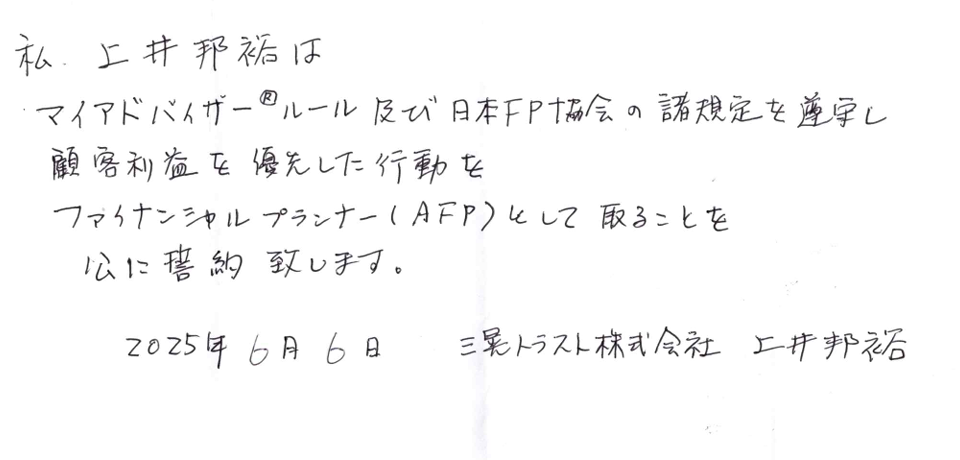 私 上井邦裕は
マイアドバイザー®ルール及び日本FP協会の諸規定を遵守し
顧客利益を優先した行動を
ファイナンシャルプランナー(AFP)として取ることを
公に誓約致します。
2025年6月6日 三晃トラスト株式会社 上井邦裕